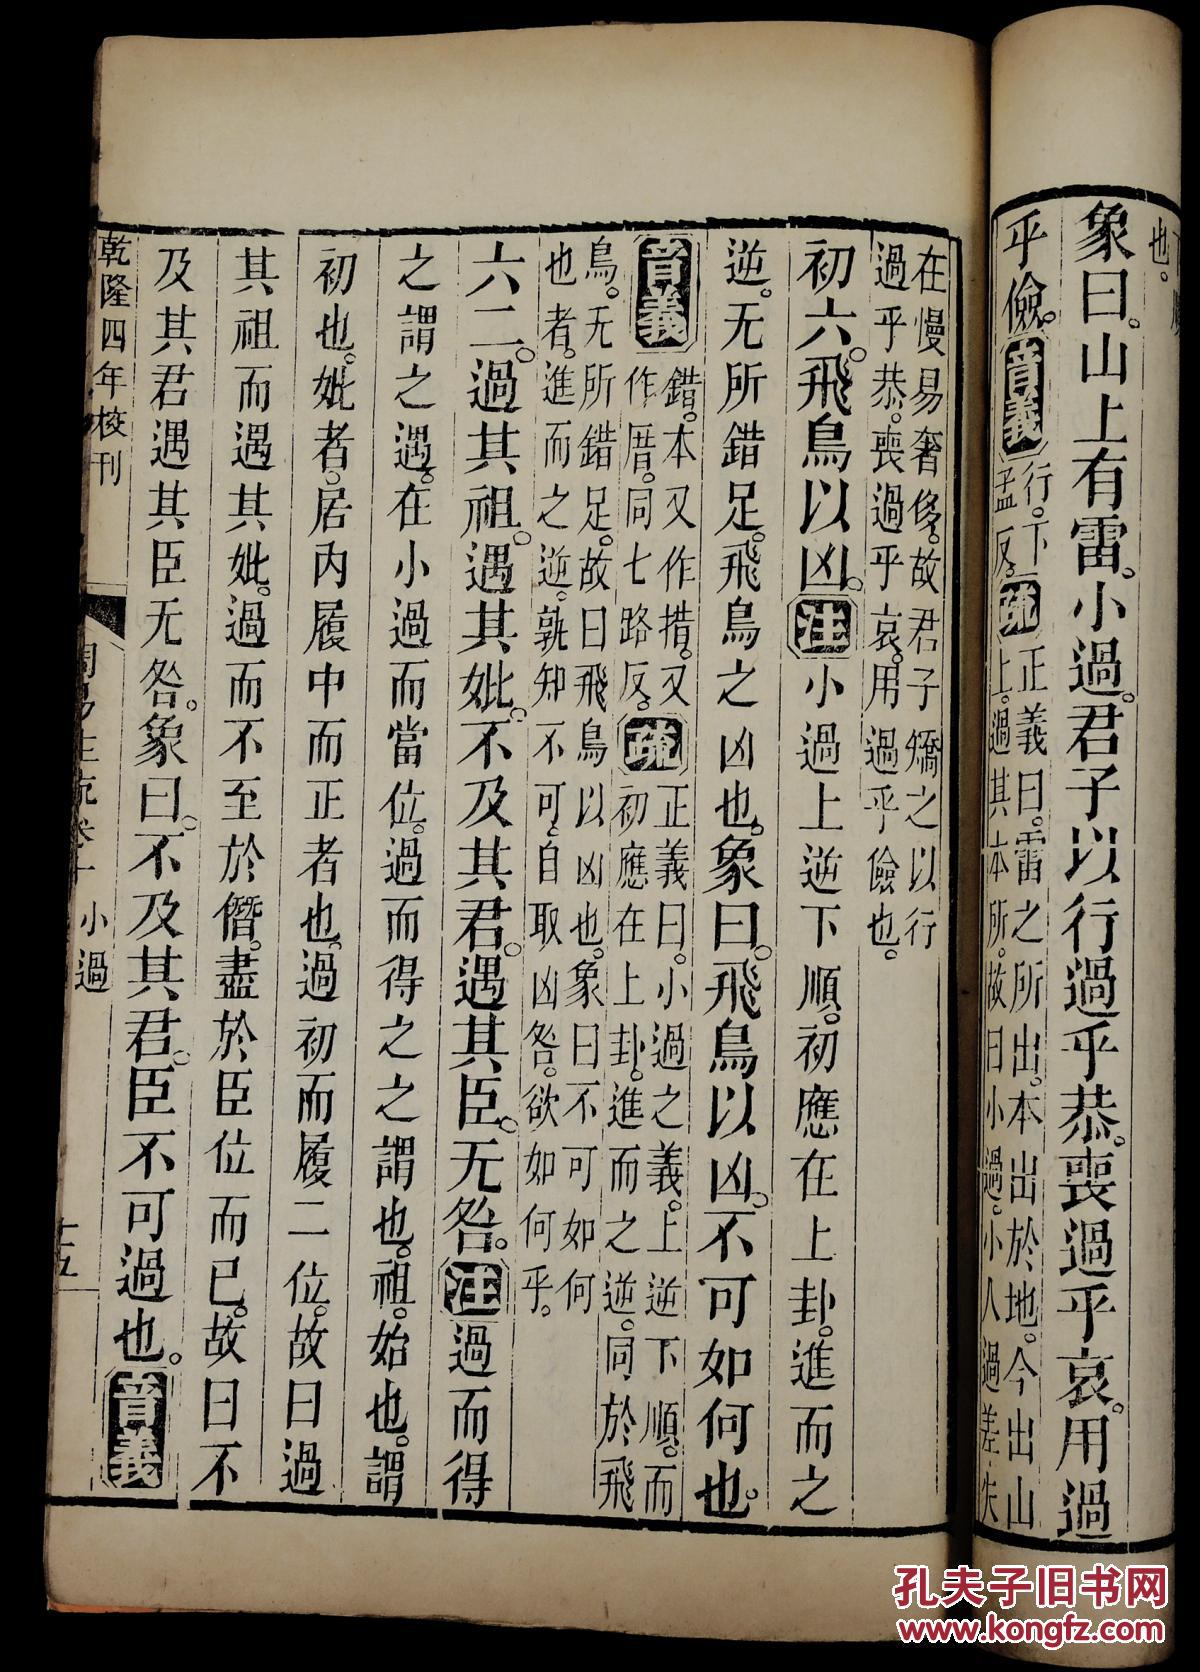 也。
象曰。山上有雷。小過。君子以行過乎恭。喪過乎哀。用過
乎儉。音義行。下孟反。疏正義曰。雷之所出。本出於地。今出山
上。過其本所。故曰小過。小人過差失
在慢易奢侈。故君子矯之以行
過乎恭。喪過乎哀。用過乎儉也。
初六。飛鳥以凶。注小過上逆下順。初應在上卦。進而之
逆。无所錯足。飛鳥之凶也。象曰。飛鳥以凶。不可如何也。
音義錯。本又作措。又作厝。同七路反。疏正義曰。小過之義。上逆下順。而
初應在上卦。進而之逆。同於飛
鳥。无所錯足。故曰飛鳥以凶也。象曰不可如何
也者。進而之逆。孰知不可。自取凶咎。欲如何乎。
六二。過其祖。遇其妣。不及其君。遇其臣。无咎。注過而得
之謂之遇。在小過而當位。過而得之之謂也。祖。始也。謂
初也。妣者。居內履中而正者也。過初而履二位。故曰過
其祖而遇其妣。過而不至於僭。盡於臣位而已。故曰不
及其君遇其臣无咎。象曰。不及其君。臣不可過也。音義
乾隆四年校刊
小過
十五
孔夫子旧书网
www.kongfz.com